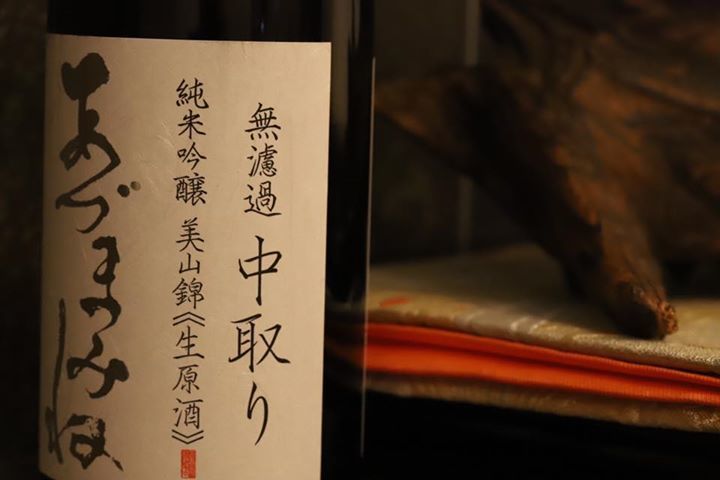 無濾過 中取り
純米吟醸 美山錦《生原酒》
あづまみね